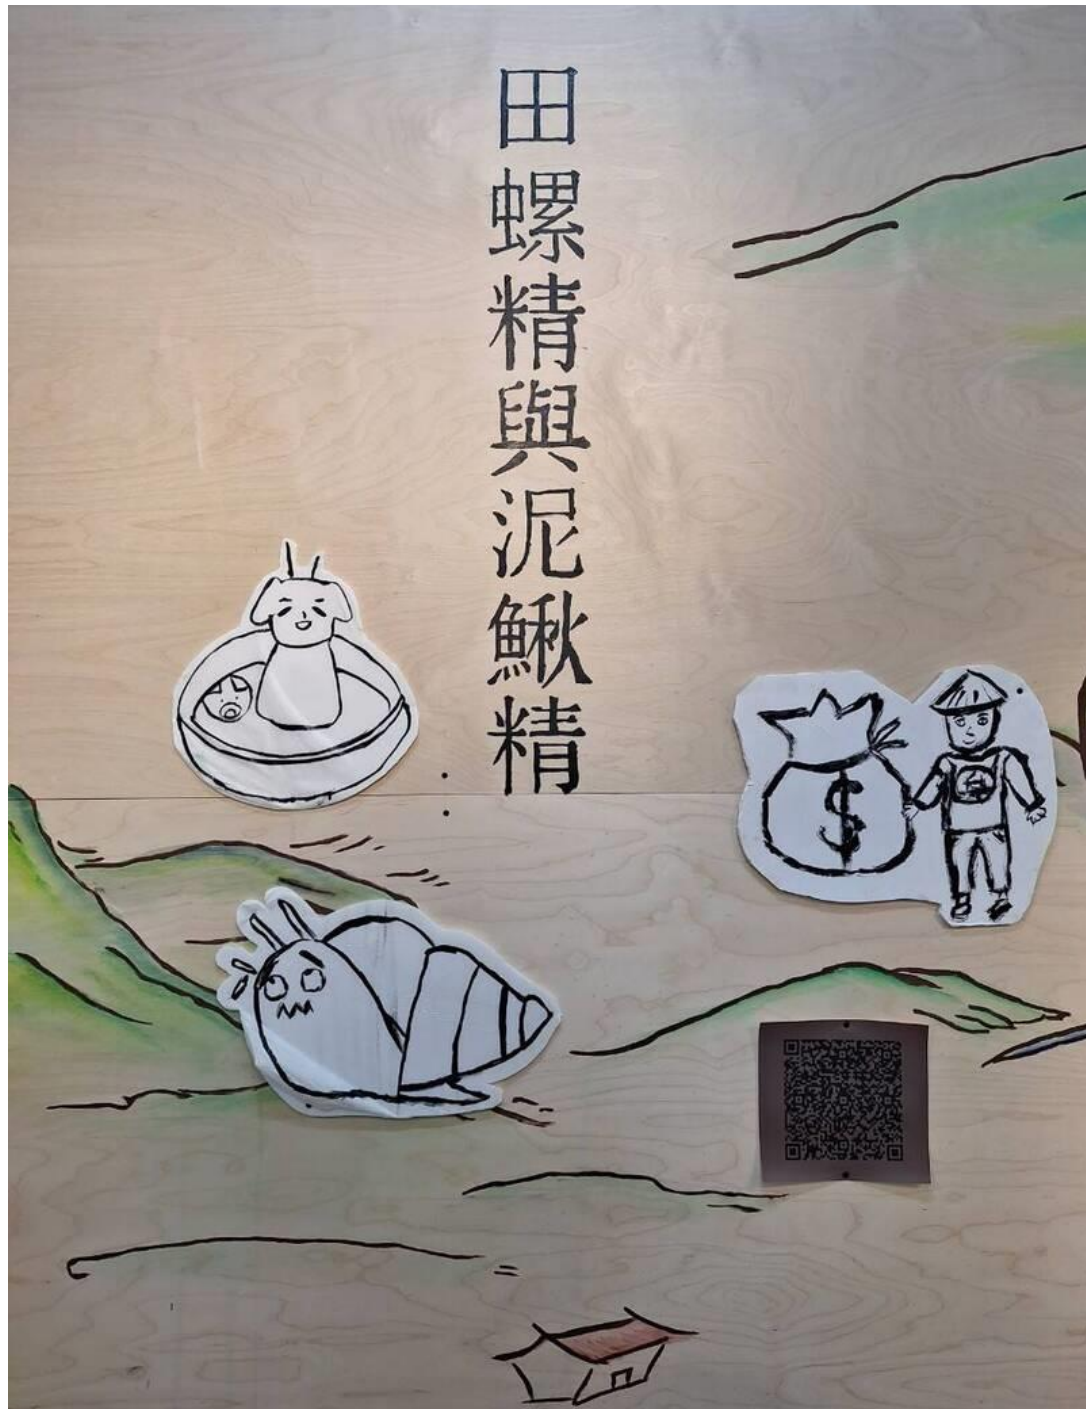 田螺精與泥鰍精
$